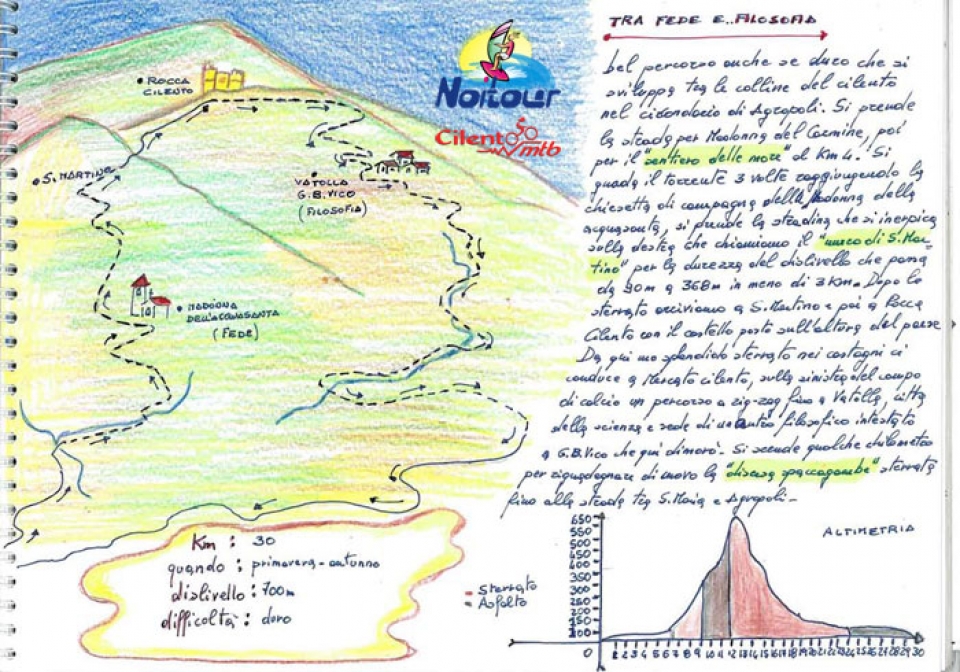 TRA FEDE E..FILOSOFIA
bel percorso anche se duro che si
sviluppa tra le colline del cilento
nel circondario di Agropoli. Si prende
la strada per Madonna del Carmine, poi
per il "sentiero delle more" al Km 4. Si
guada il torrente 3 volte raggiungendo la
chiesetta di campagna della Madonna della
acquasanta, si prende la stradina che si inerpica
sulla destra che chiamiamo il "muro di S. Mar-
tino" per la durezza del dislivello che passa
da 90m a 368m in meno di 3 Km. Dopo lo
sterrato arriviamo a S. Martino e poi a Rocca
Cilento con il castello posto sull'altura del paese
Da qui uno splendido sterrato nei castagni ci
conduce a Mercato cilento, sulla sinistra del campo
di calcio un percorso a zig-zag fino a Vatolla, città
della scienza e sede di un filosofico intestato
a G.B. Vico che qui dimorò. Si scende qualche chilometro
per riguadagnare di nuovo la "discesa spaccagambe" sterrata
fino alla strada tra S. Maria e Agropoli -
ROCCA
CILENTO
Noitour
Cilento mtb
S. MARTINO
VATOLLA
G.B. VICO
(FILOSOFIA)
MADONNA
DELL'ACQUASANTA
(FEDE)
Km : 30
quando : primavera - autunno
dislivello : 700m
difficoltà : duro
Sterrato
Asfalto
ALTIMETRIA
650
600
550
500
450
400
350
300
250
200
150
100
0
0 1 2 3 4 5 6 7 8 9 10 11 12 13 14 15 16 17 18 19 20 21 22 23 24 25 26 27 28 29 30